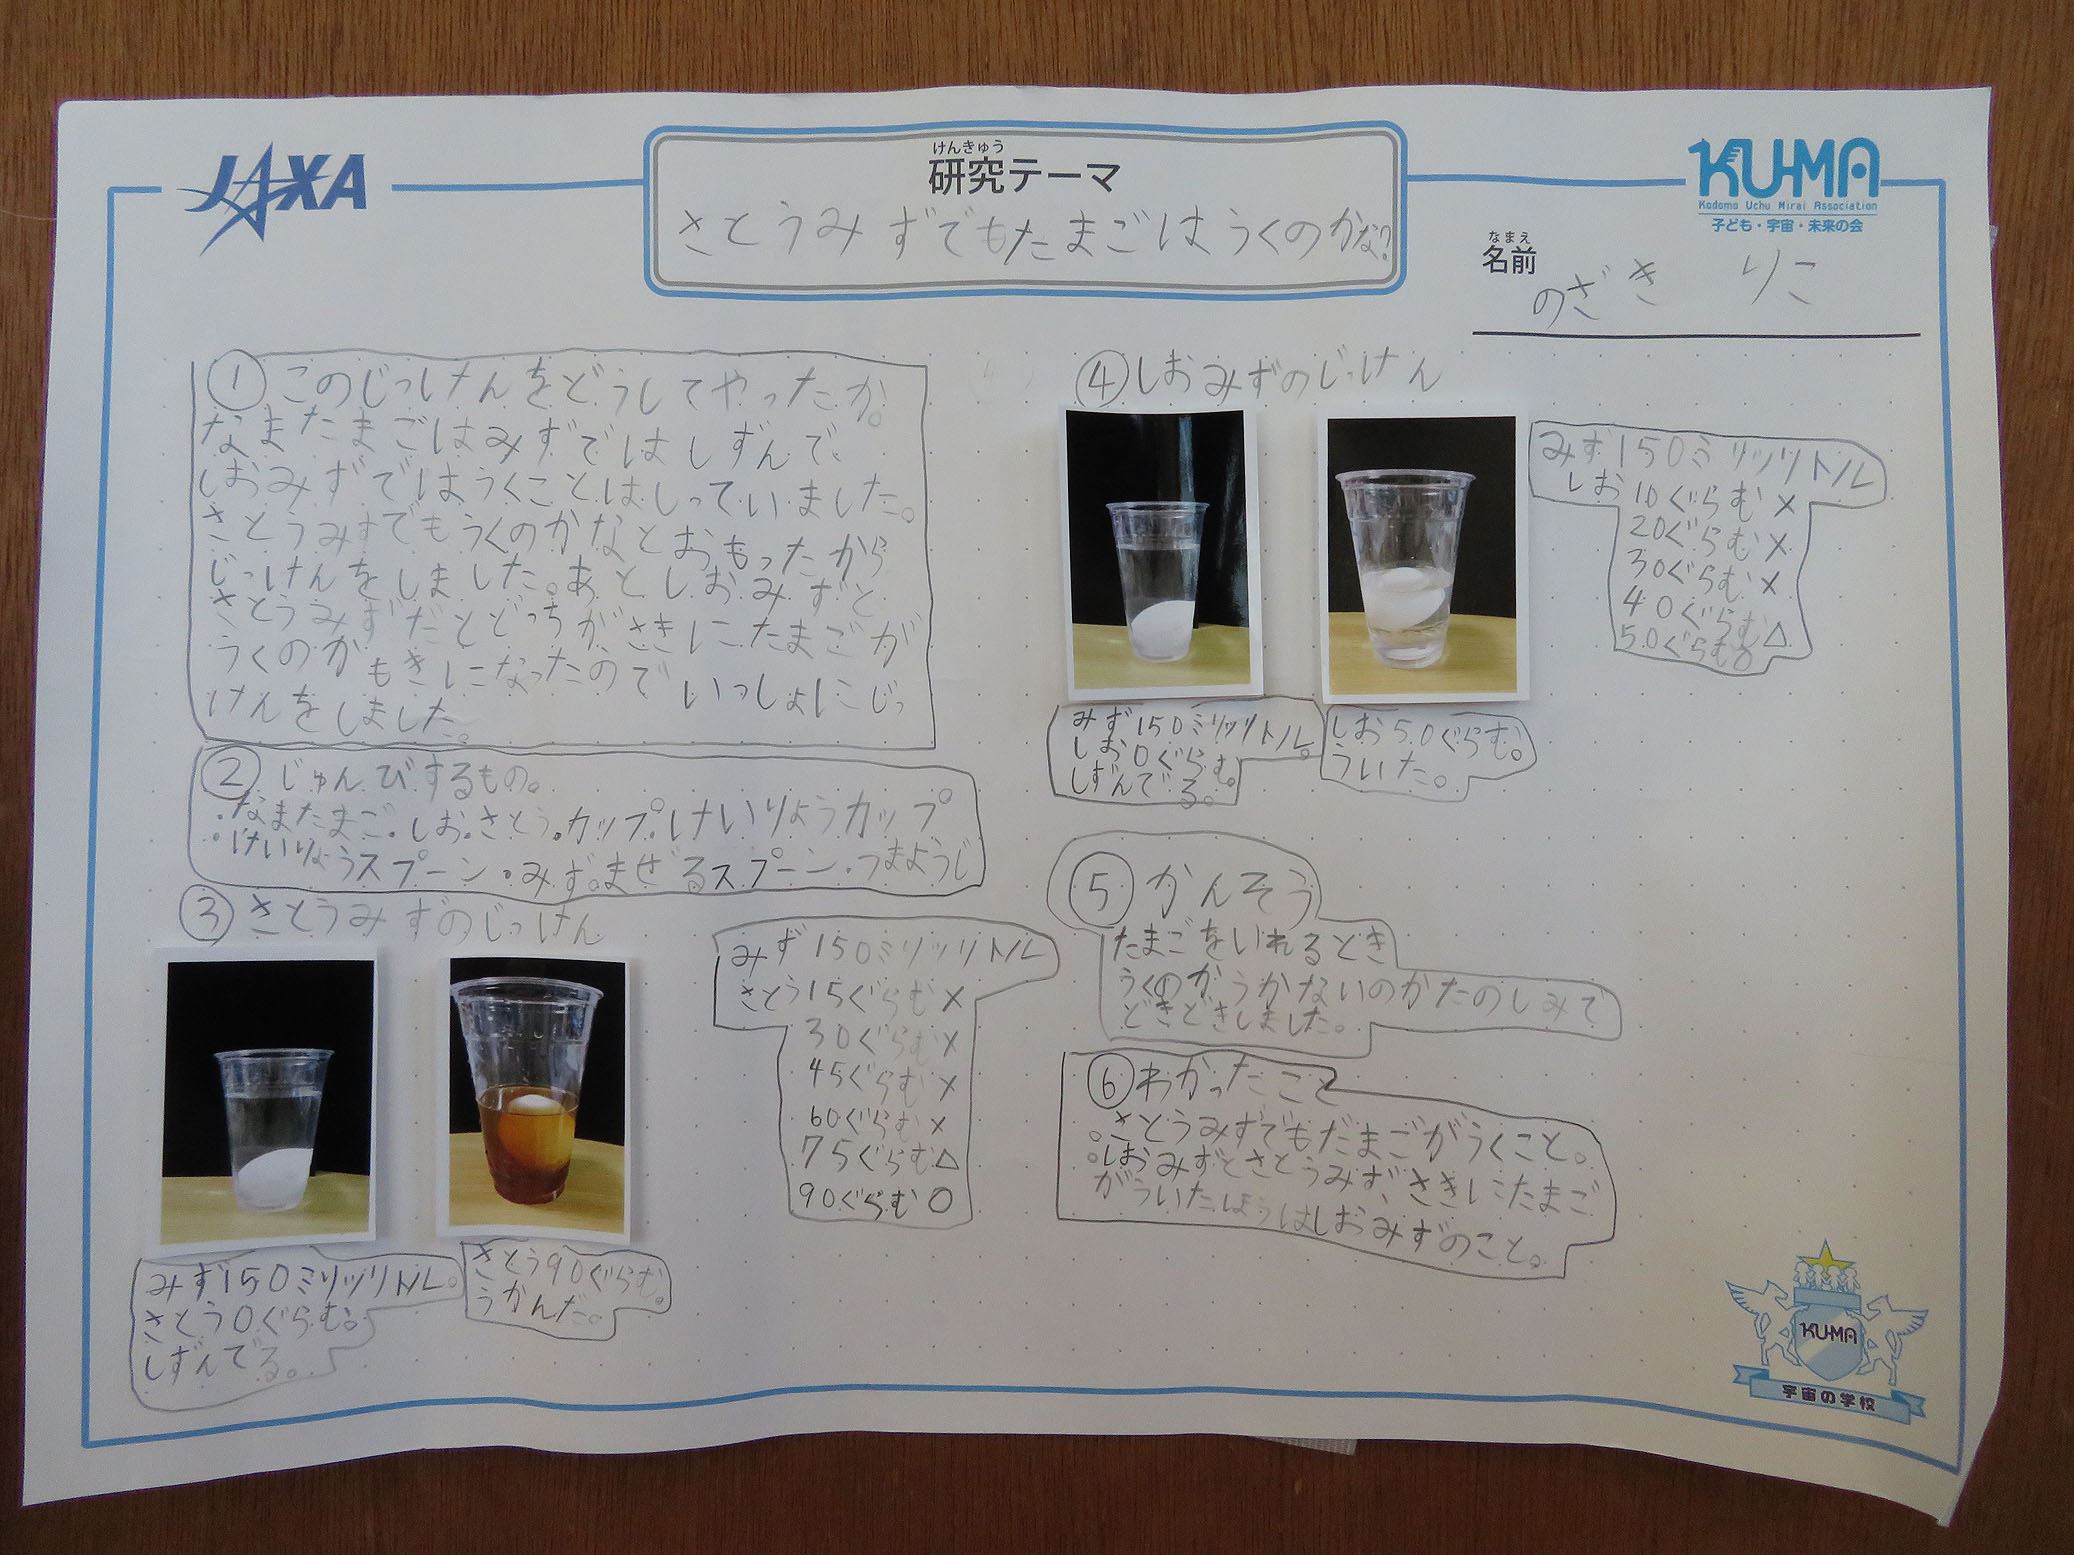 JAXA
けんきゅう
研究テーマ
さとうみずでもたまごはうくのかな?
KU-MA
Kodomo Uchu Mirai Association
子ども・宇宙・未来の会
なまえ
名前
のざき りこ
①このじっけんをどうしてやったか。
なまたまごはみずではしずんで
しおみずではうくことはしっていました。
さとうみずでもうくのかなとおもったから
じっけんをしました。あとしおみずと
さとうみずだとどっちがさきにたまごが
うくのかもきになったのでいっしょにじっ
けんをしました。
②じゅんびするもの。
・なまたまご・しお・さとう・カップ・けいりょうカップ
・けいりょうスプーン・みず・まぜるスプーン・つまようじ
③さとうみずのじっけん
みず150ミリッリトル
さとう15ぐらむ×
30ぐらむ×
45ぐらむ×
60ぐらむ×
75ぐらむ△
90ぐらむ○
みず150ミリッリトル。
さとう0ぐらむ。
しずんでる。
さとう90ぐらむ。
うかんだ。
④しおみずのじっけん
みず150ミリッリトル
しお10ぐらむ×
20ぐらむ×
30ぐらむ×
40ぐらむ△
50ぐらむ○
みず150ミリッリトル。
しお0ぐらむ。
しずんでる。
しお50ぐらむ。
ういた。
⑤かんそう
たまごをいれるとき
うくのかうかないのかたのしみで
どきどきしました。
⑥わかったこと
・さとうみずでもたまごがうくこと。
・しおみずとさとうみず、さきにたまご
がういたほうはしおみずのこと。
KU-MA
宇宙の学校